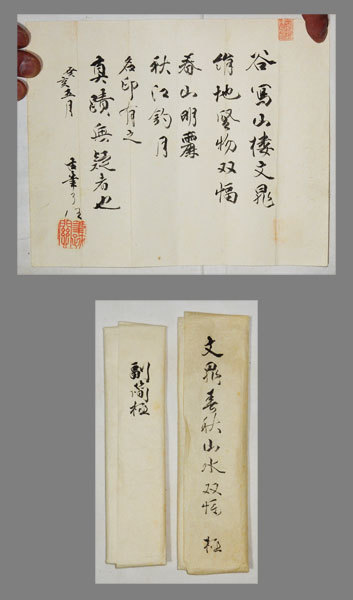 谷写山楼文鼎
絹地竪物双幅
春山明麗
秋江釣月
名印有之
真蹟無疑者也
癸亥五月
古筆了
文鼎春秋山水双幅 極
副簡極